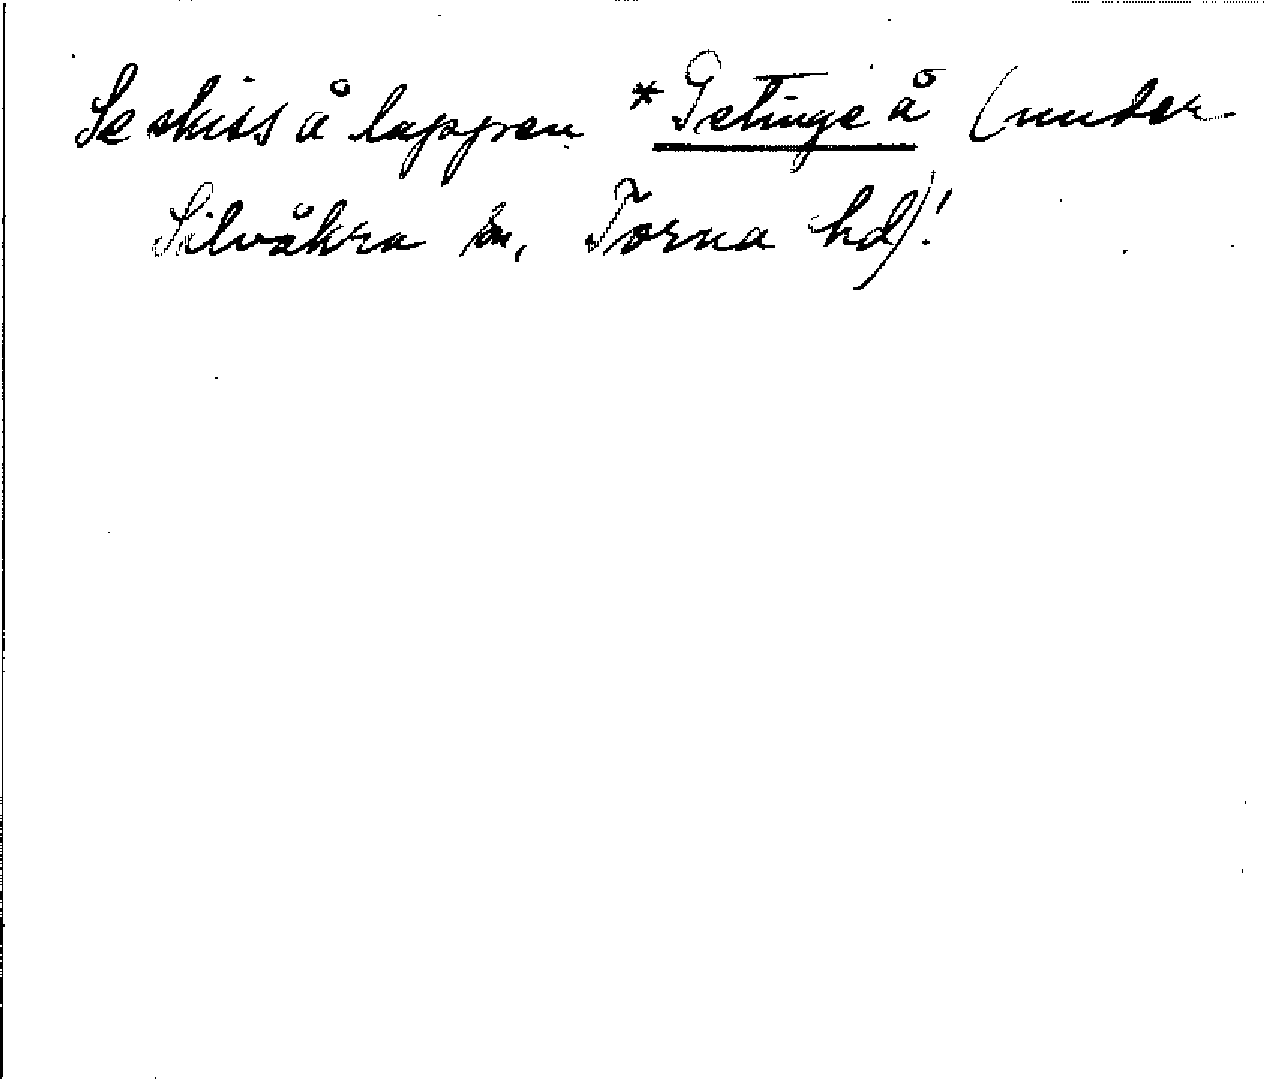 Se skiss å lappen *Getinge å (under
Silvåkra sn, Torna hd)!